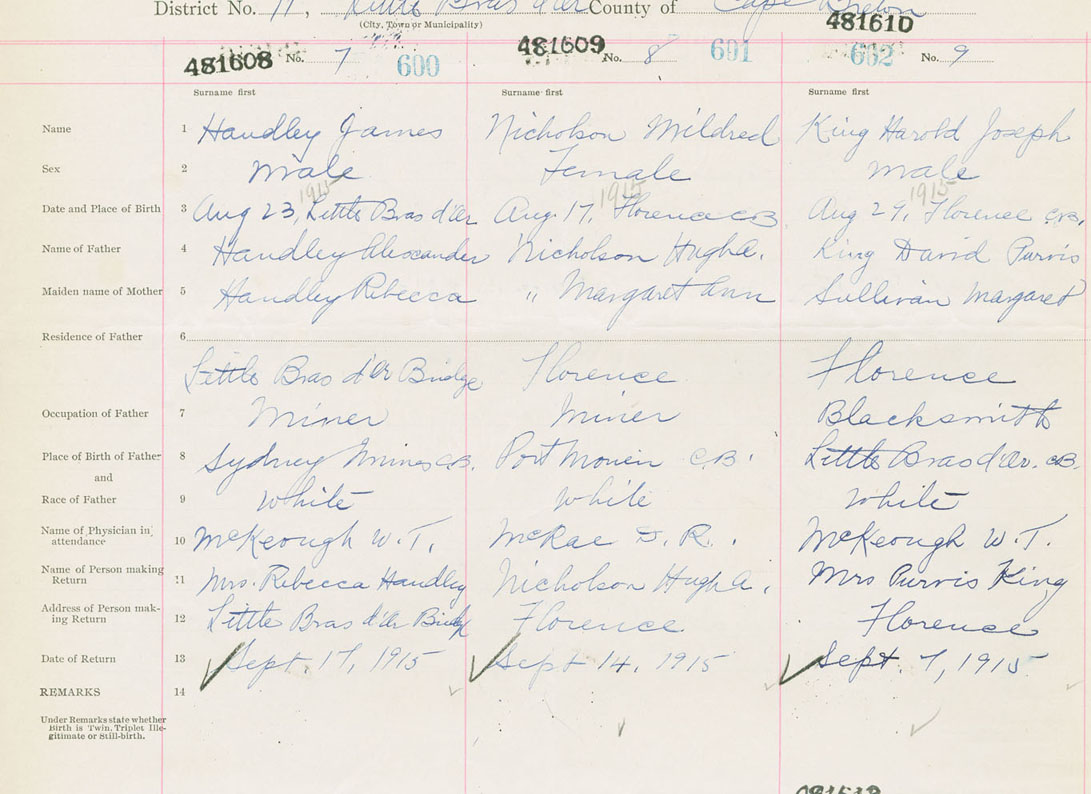 District No. 11, Little Bras d'or County of Cape Breton
(City, Town or Municipality)
481608 No. 7 600 481609 No. 8 601 481610 602 No. 9
Surname first Surname first Surname first
Name 1 Handley James Nicholson Mildred King Harold Joseph
Sex 2 Male Female Male
1915 1915 1915
Date and Place of Birth 3 Aug 23, Little Bras d'Or Aug. 17, Florence C.B. Aug 29, Florence C.B.
Name of Father 4 Handley Alexander Nicholson Hugh A. King David Purvis
Maiden name of Mother 5 Handley Rebecca " Margaret Ann Sullivan Margaret
Residence of Father 6
Little Bras d'Or Bridge Florence Florence
Occupation of Father 7 Miner Miner Blacksmith
Place of Birth of Father 8 Sydney Mines C.B. Port Morien C.B. Little Bras d'Or. C.B.
and
Race of Father 9 White White White
Name of Physician in
attendance 10 McKeough W. T. McRae D. R. McKeough W. T.
Name of Person making
Return 11 Mrs. Rebecca Handley Nicholson Hugh A. Mrs Purvis King
Address of Person mak-
ing Return 12 Little Bras d'Or Bridge Florence Florence
Date of Return 13 Sept. 17, 1915 Sept 14, 1915 Sept. 7, 1915
REMARKS 14
Under Remarks state whether
Birth is Twin, Triplet Ille-
gitimate or Still-birth.